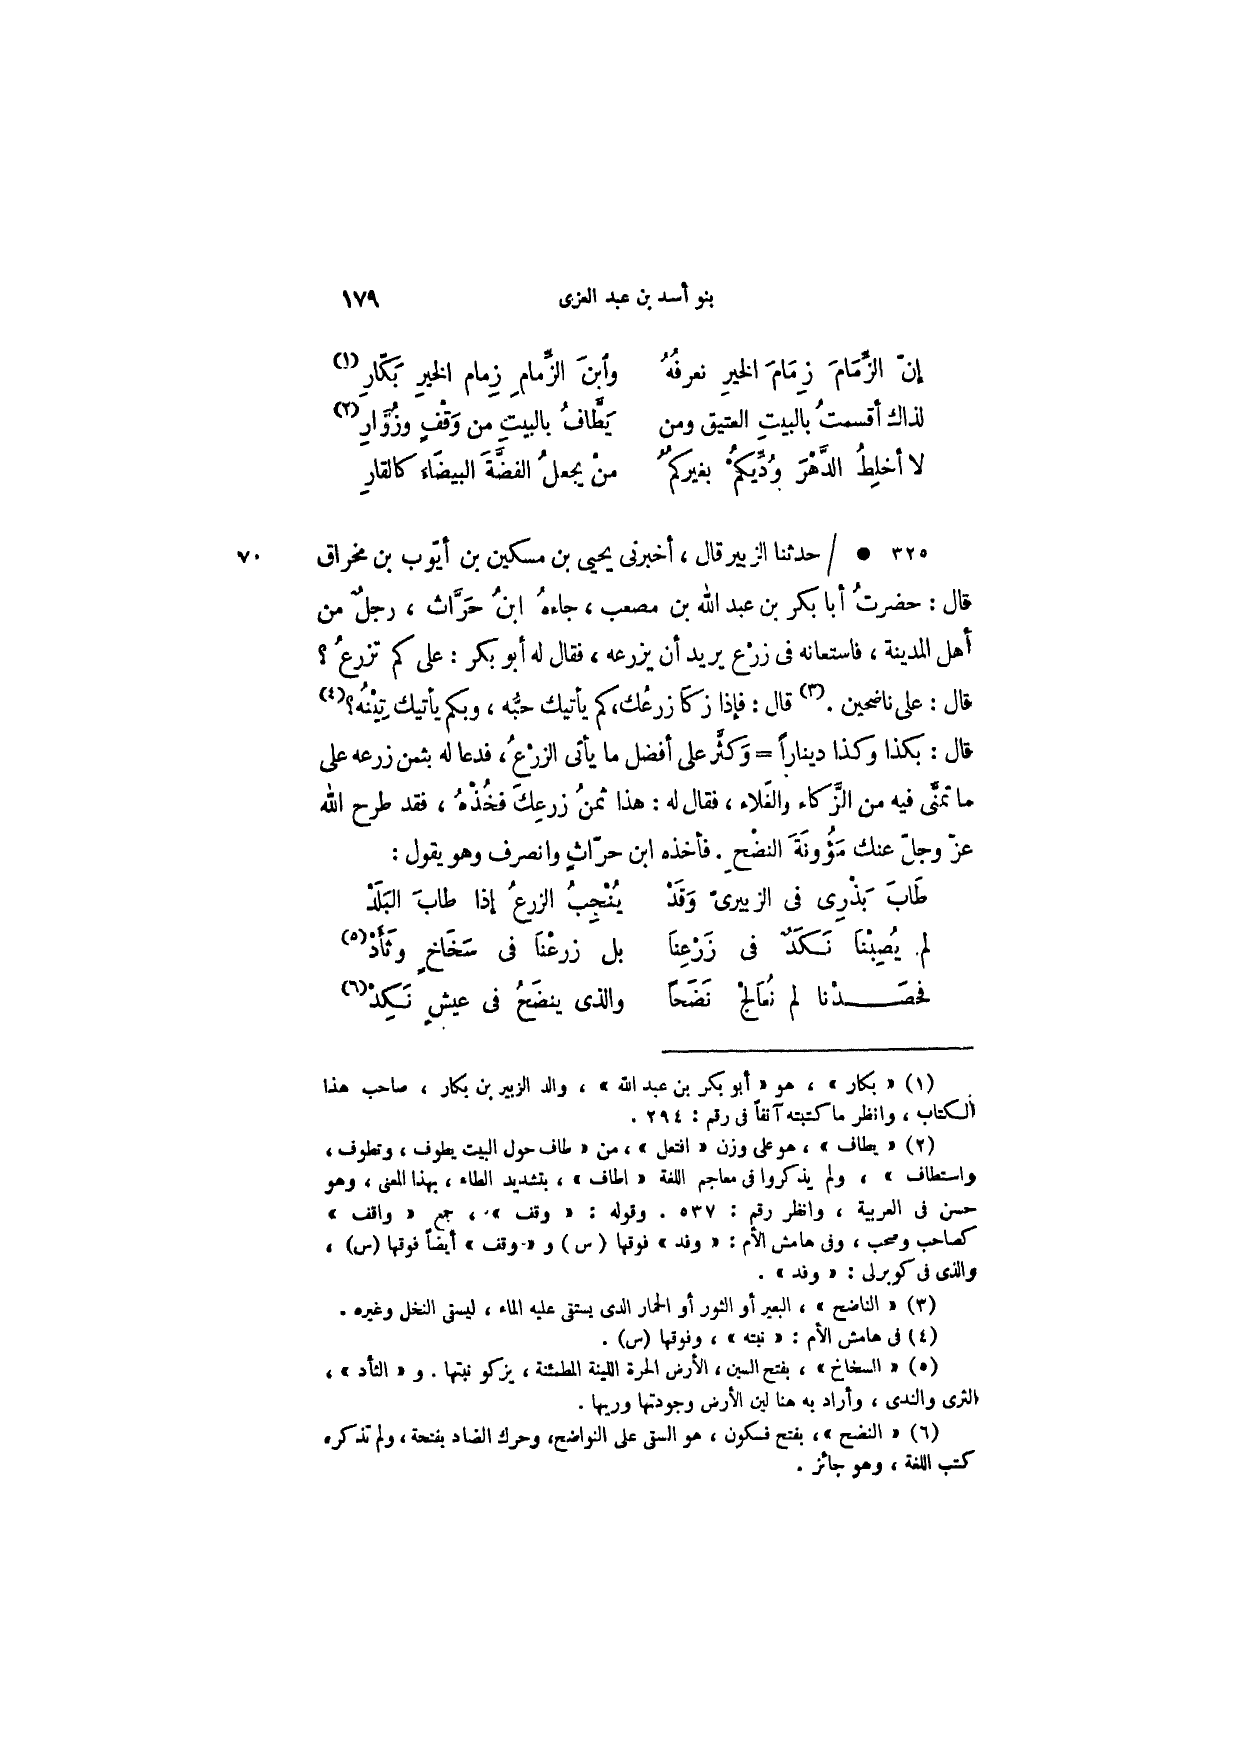 بنو أسد بن عبد العزى ١٧٩
إنّ الزِّمَامَ زِمَامَ الخيرِ نعرفُهُ وٱبنَ الزِّمامِ زِمام الخيرِ بَكّارِ (١)
لذاك أقسمتُ بالبيتِ العتيق ومن يَطَّافُ بالبيتِ من وَقْفٍ وزُوَّارِ (٢)
لا أخلِطُ الدَّهْرَ وُدِّيكُمْ بغيركمُ منْ يجعلُ الفضَّةَ البيضَاء كالقارِ
٣٢٥ ● / حدثنا الزبير قال ، أخبرنى يحيى بن مسكين بن أيّوب بن مخراق ٧٠
قال : حضرتُ أبا بكر بن عبد الله بن مصعب ، جاءهُ ابنُ حَرَّاث ، رجلٌ من
أهل المدينة ، فاستعانه فى زرْع يريد أن يزرعه ، فقال له أبو بكر : على كم تزرعُ ؟
قال : على ناضحين . (٣) قال : فإذا زكَا زرعُك، كم يأتيك حبُّه ، وبكم يأتيك تِبْنُه ؟ (٤)
قال : بكذا وكذا ديناراً = وَكثَّر على أفضل ما يأتى الزرْعُ ، فدعا له بثمن زرعه على
ما تمنَّى فيه من الزَّكاء والغَلاء ، فقال له : هذا ثمنُ زرعِكَ فخُذْهُ ، فقد طرح الله
عزّ وجلّ عنك مَؤُونَةَ النضْحِ . فأخذه ابن حرّاثٍ وانصرف وهو يقول :
طَابَ بَذْرِى فى الزبيرىّ وَقَدْ يُنْجِبُ الزرعُ إذا طابَ البَلَدْ
لم يُصِبْنَا نَكَدٌ فى زَرْعِنَا بل زرعْنَا فى سَخَاخٍ وثَأَدْ (٥)
فحَصَدْنا لم نُعالجْ نَضَحاً والذى ينضَحُ فى عيشٍ نَكِدْ (٦)
(١) « بكار » ، هو « أبو بكر بن عبد الله » ، والد الزبير بن بكار ، صاحب هذا
الكتاب ، وانظر ما كتبته آنفاً فى رقم : ٢٩٤ .
(٢) « يطاف » ، هو على وزن « افتعل » ، من « طاف حول البيت يطوف ، وتطوف ،
واستطاف » ، ولم يذكروا فى معاجم اللغة « اطاف » ، بتشديد الطاء ، بهذا المعنى ، وهو
حسن فى العربية ، وانظر رقم : ٥٣٧ . وقوله : « وقف » ، جمع « واقف »
كصاحب وصحب ، وفى هامش الأم : « وفد » فوقها ( س ) و « وقف » أيضاً فوقها (س) ،
والذى فى كوبرلى : « وفد » .
(٣) « الناضح » ، البعير أو الثور أو الحمار الذى يستقى عليه الماء ، ليسقى النخل وغيره .
(٤) فى هامش الأم : « نبته » ، وفوقها (س) .
(٥) « السخاخ » ، بفتح السين ، الأرض الحرة اللينة المطمئنة ، يزكو نبتها . و « الثأد » ،
الثرى والندى ، وأراد به هنا لين الأرض وجودتها وريها .
(٦) « النضح » ، بفتح فسكون ، هو السقى على النواضح، وحرك الضاد بفتحة ، ولم تذكره
كتب اللغة ، وهو جائز .